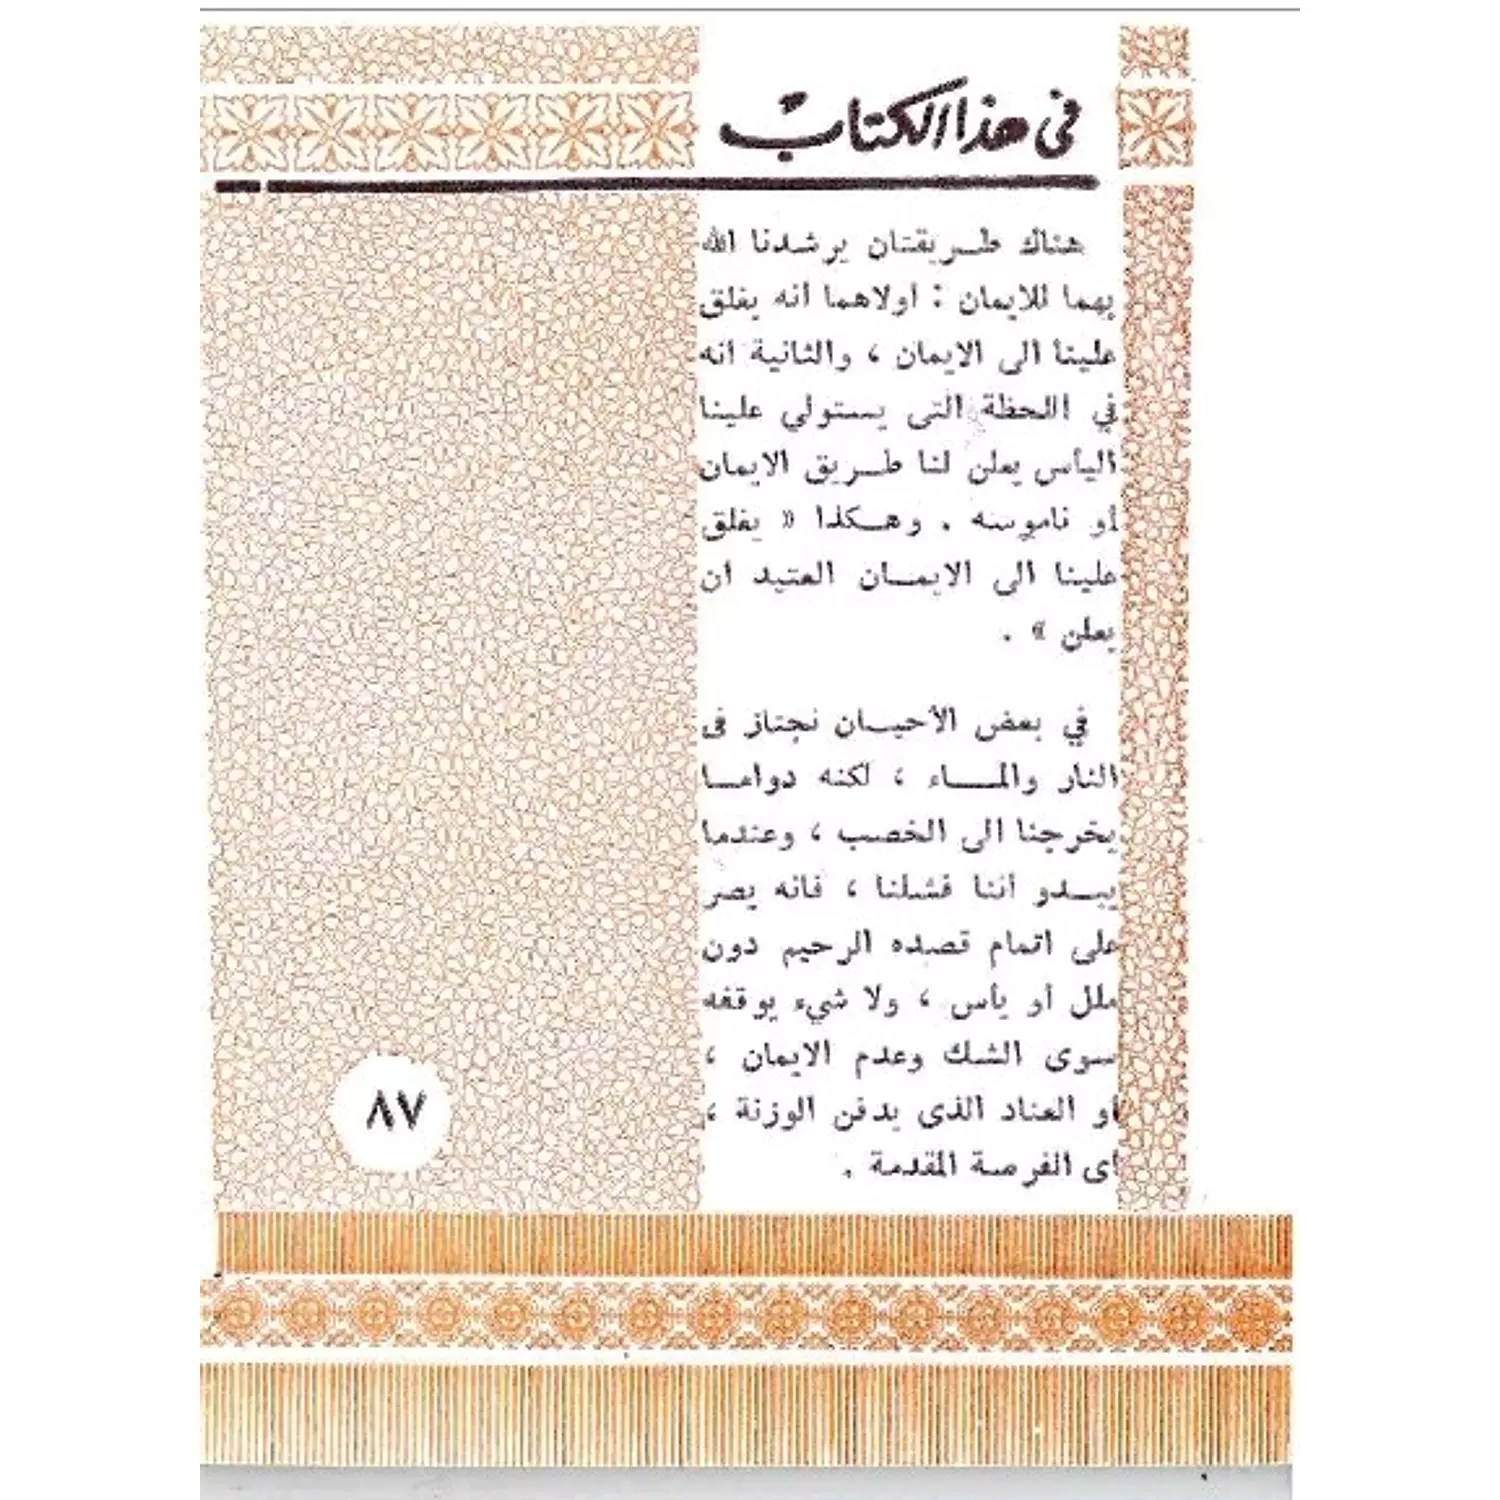 في هذا الكتاب
هناك طـريقتان يرشدنا الله
بهما للايمان : أولاهما أنه يغلق
علينا الى الايمان ، والثانية أنه
في اللحظة التى يستولي علينا
اليأس يعلن لنا طـريق الايمان
أو ناموسه . وهـكذا « يغلق
علينا الى الايمـان العتيد ان
يعلن » .
في بعض الأحيـان نجتاز فى
النار والمـاء ، لكنه دوامـا
يخرجنا الى الخصب ، وعندما
يبـدو أننا فشلنا ، فانه يصر
على اتمام قصده الرحيم دون
ملل أو يأس ، ولا شيء يوقفه
سوى الشك وعدم الايمان ،
أو العناد الذى يدفن الوزنة ،
أى الفرصة المقدمة .
٨٧